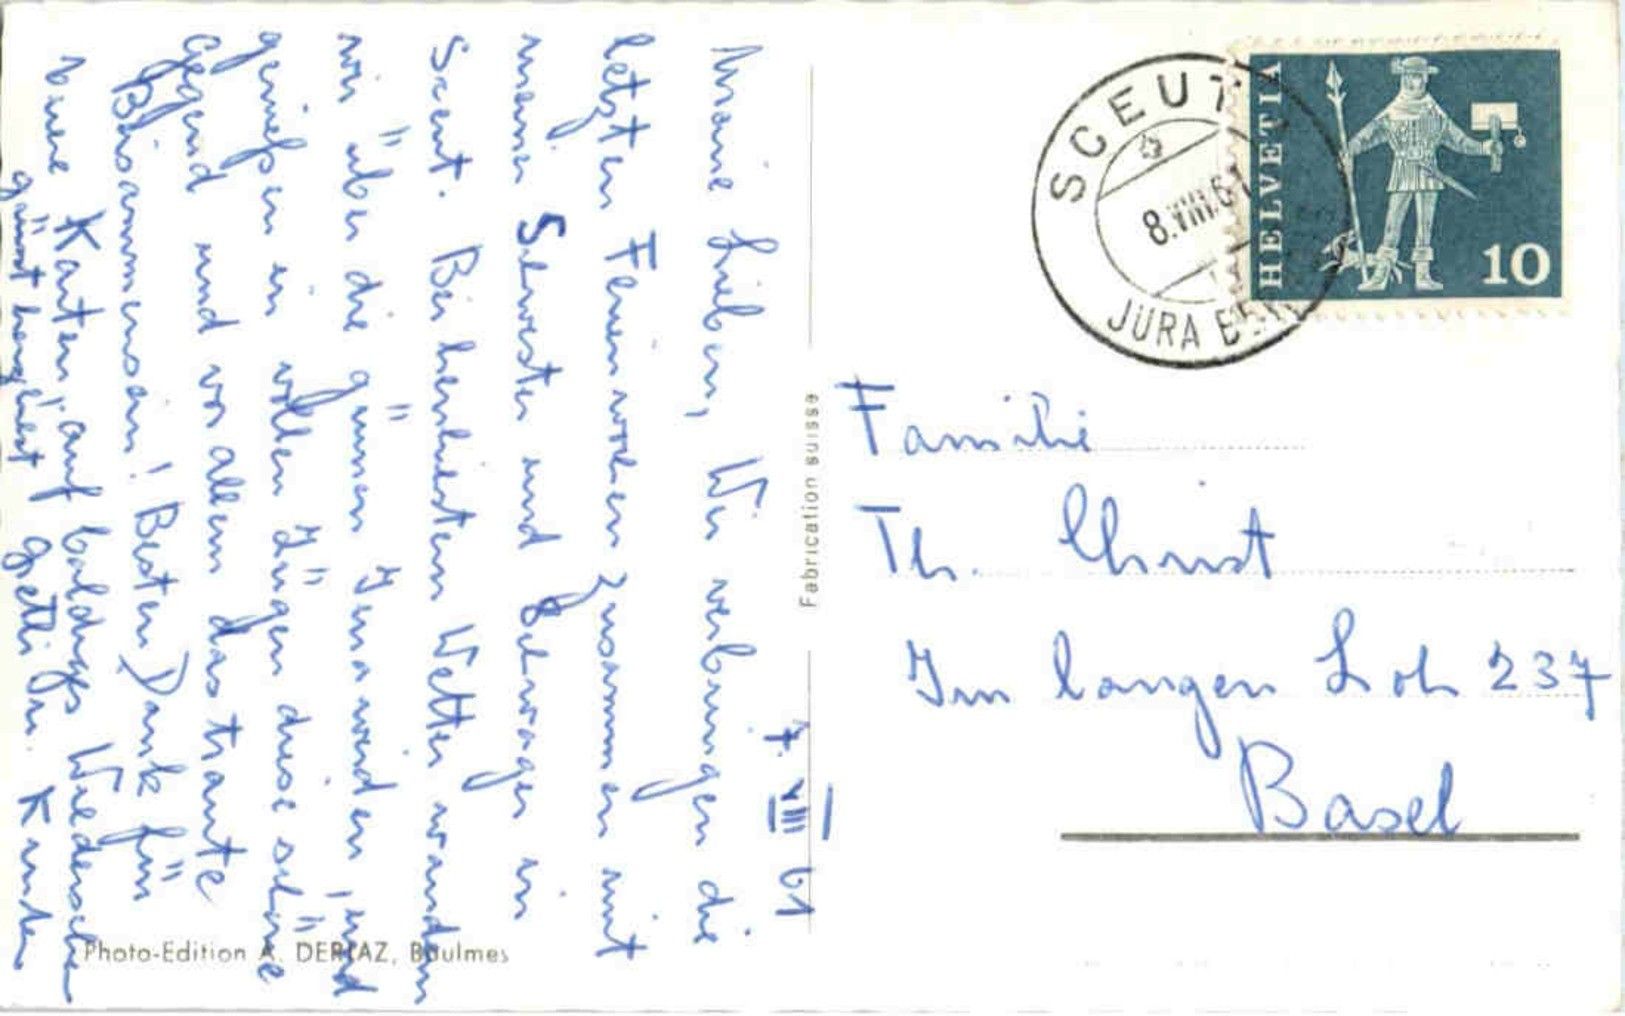 7. VIII 61
Meine Lieben, Wir verbringen die
letzten Ferienwochen zusammen mit
meiner Schwester und Schwager in
Sceut. Bei herrlichstem Wetter wandern
wir über die grünen Jura weiden und
geniessen in vollen Zügen diese schöne
Gegend und vor allem das traute
Beisammensein! Besten Dank für
Karten, auf baldiges Wiedersehen
grüsst herzlichst Gretli
Photo-Edition A. DERIAZ, Baulmes
Fabrication suisse
SCEUT
8.VIII.61
JURA BERN
HELVETIA
10
Familie
Th. Christ
Im langen Loh 237
Basel